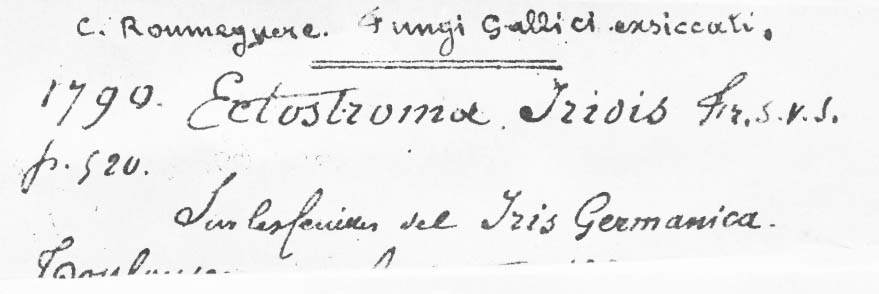 C. Roumeguere. Fungi Gallici exsiccati.
1790. Ectostroma Iridis Fr. S. V. S.
p. 520.
Sur les feuilles del Iris Germanica.